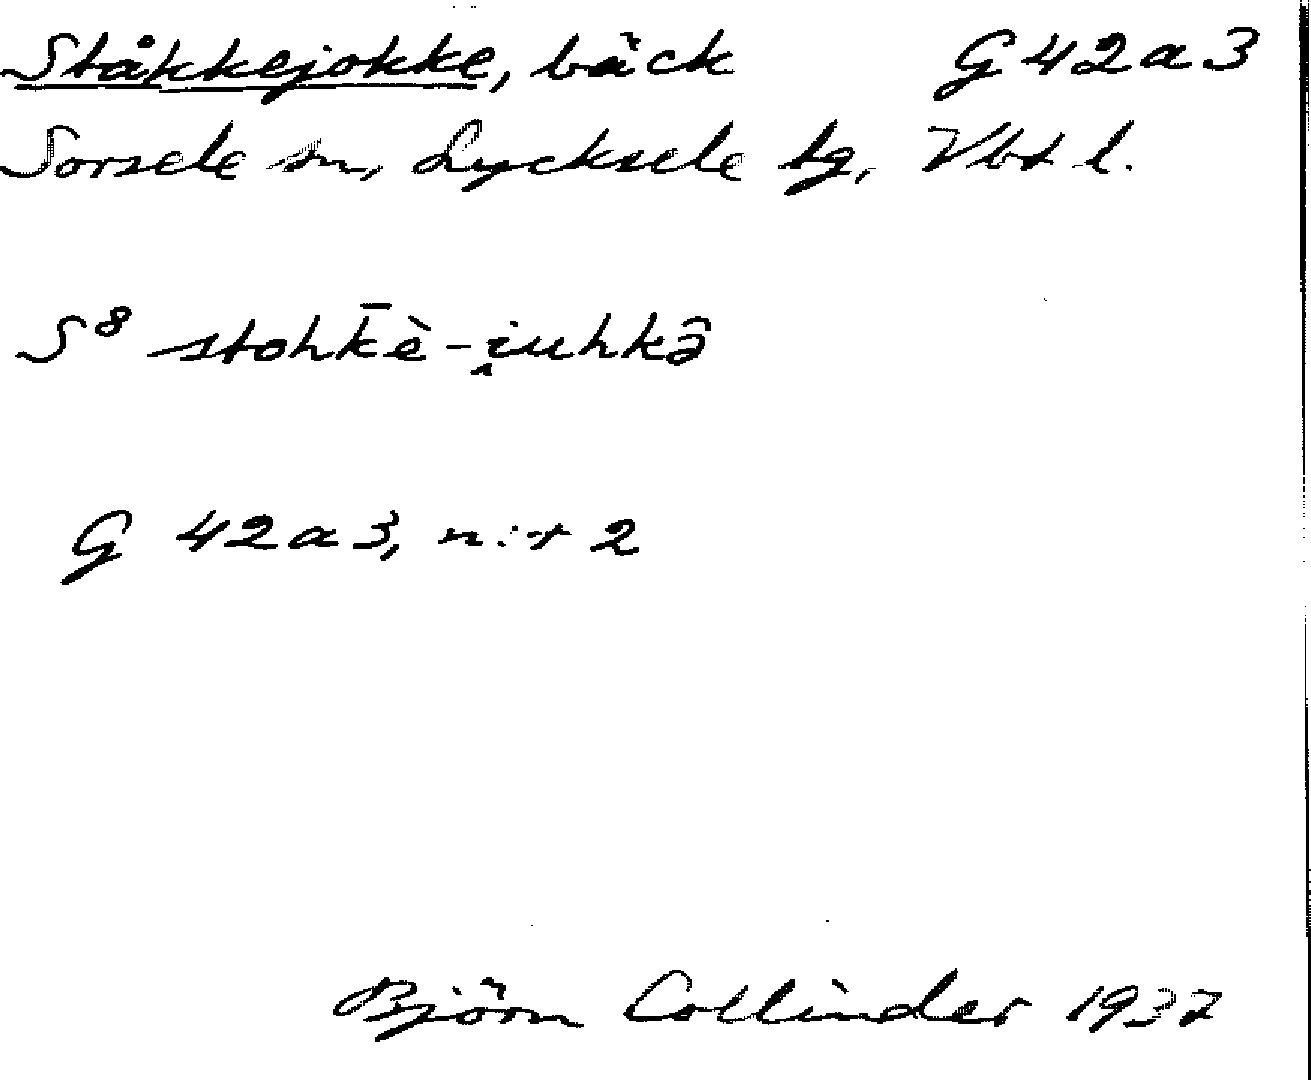 Ståkkejokke, bäck G 42 a 3
Sorsele sn, Lycksele tg, Vbt l.
S⁸ stohk̄è-i̯uhkə̑
G 42 a 3, n:r 2
Björn Collinder 1937